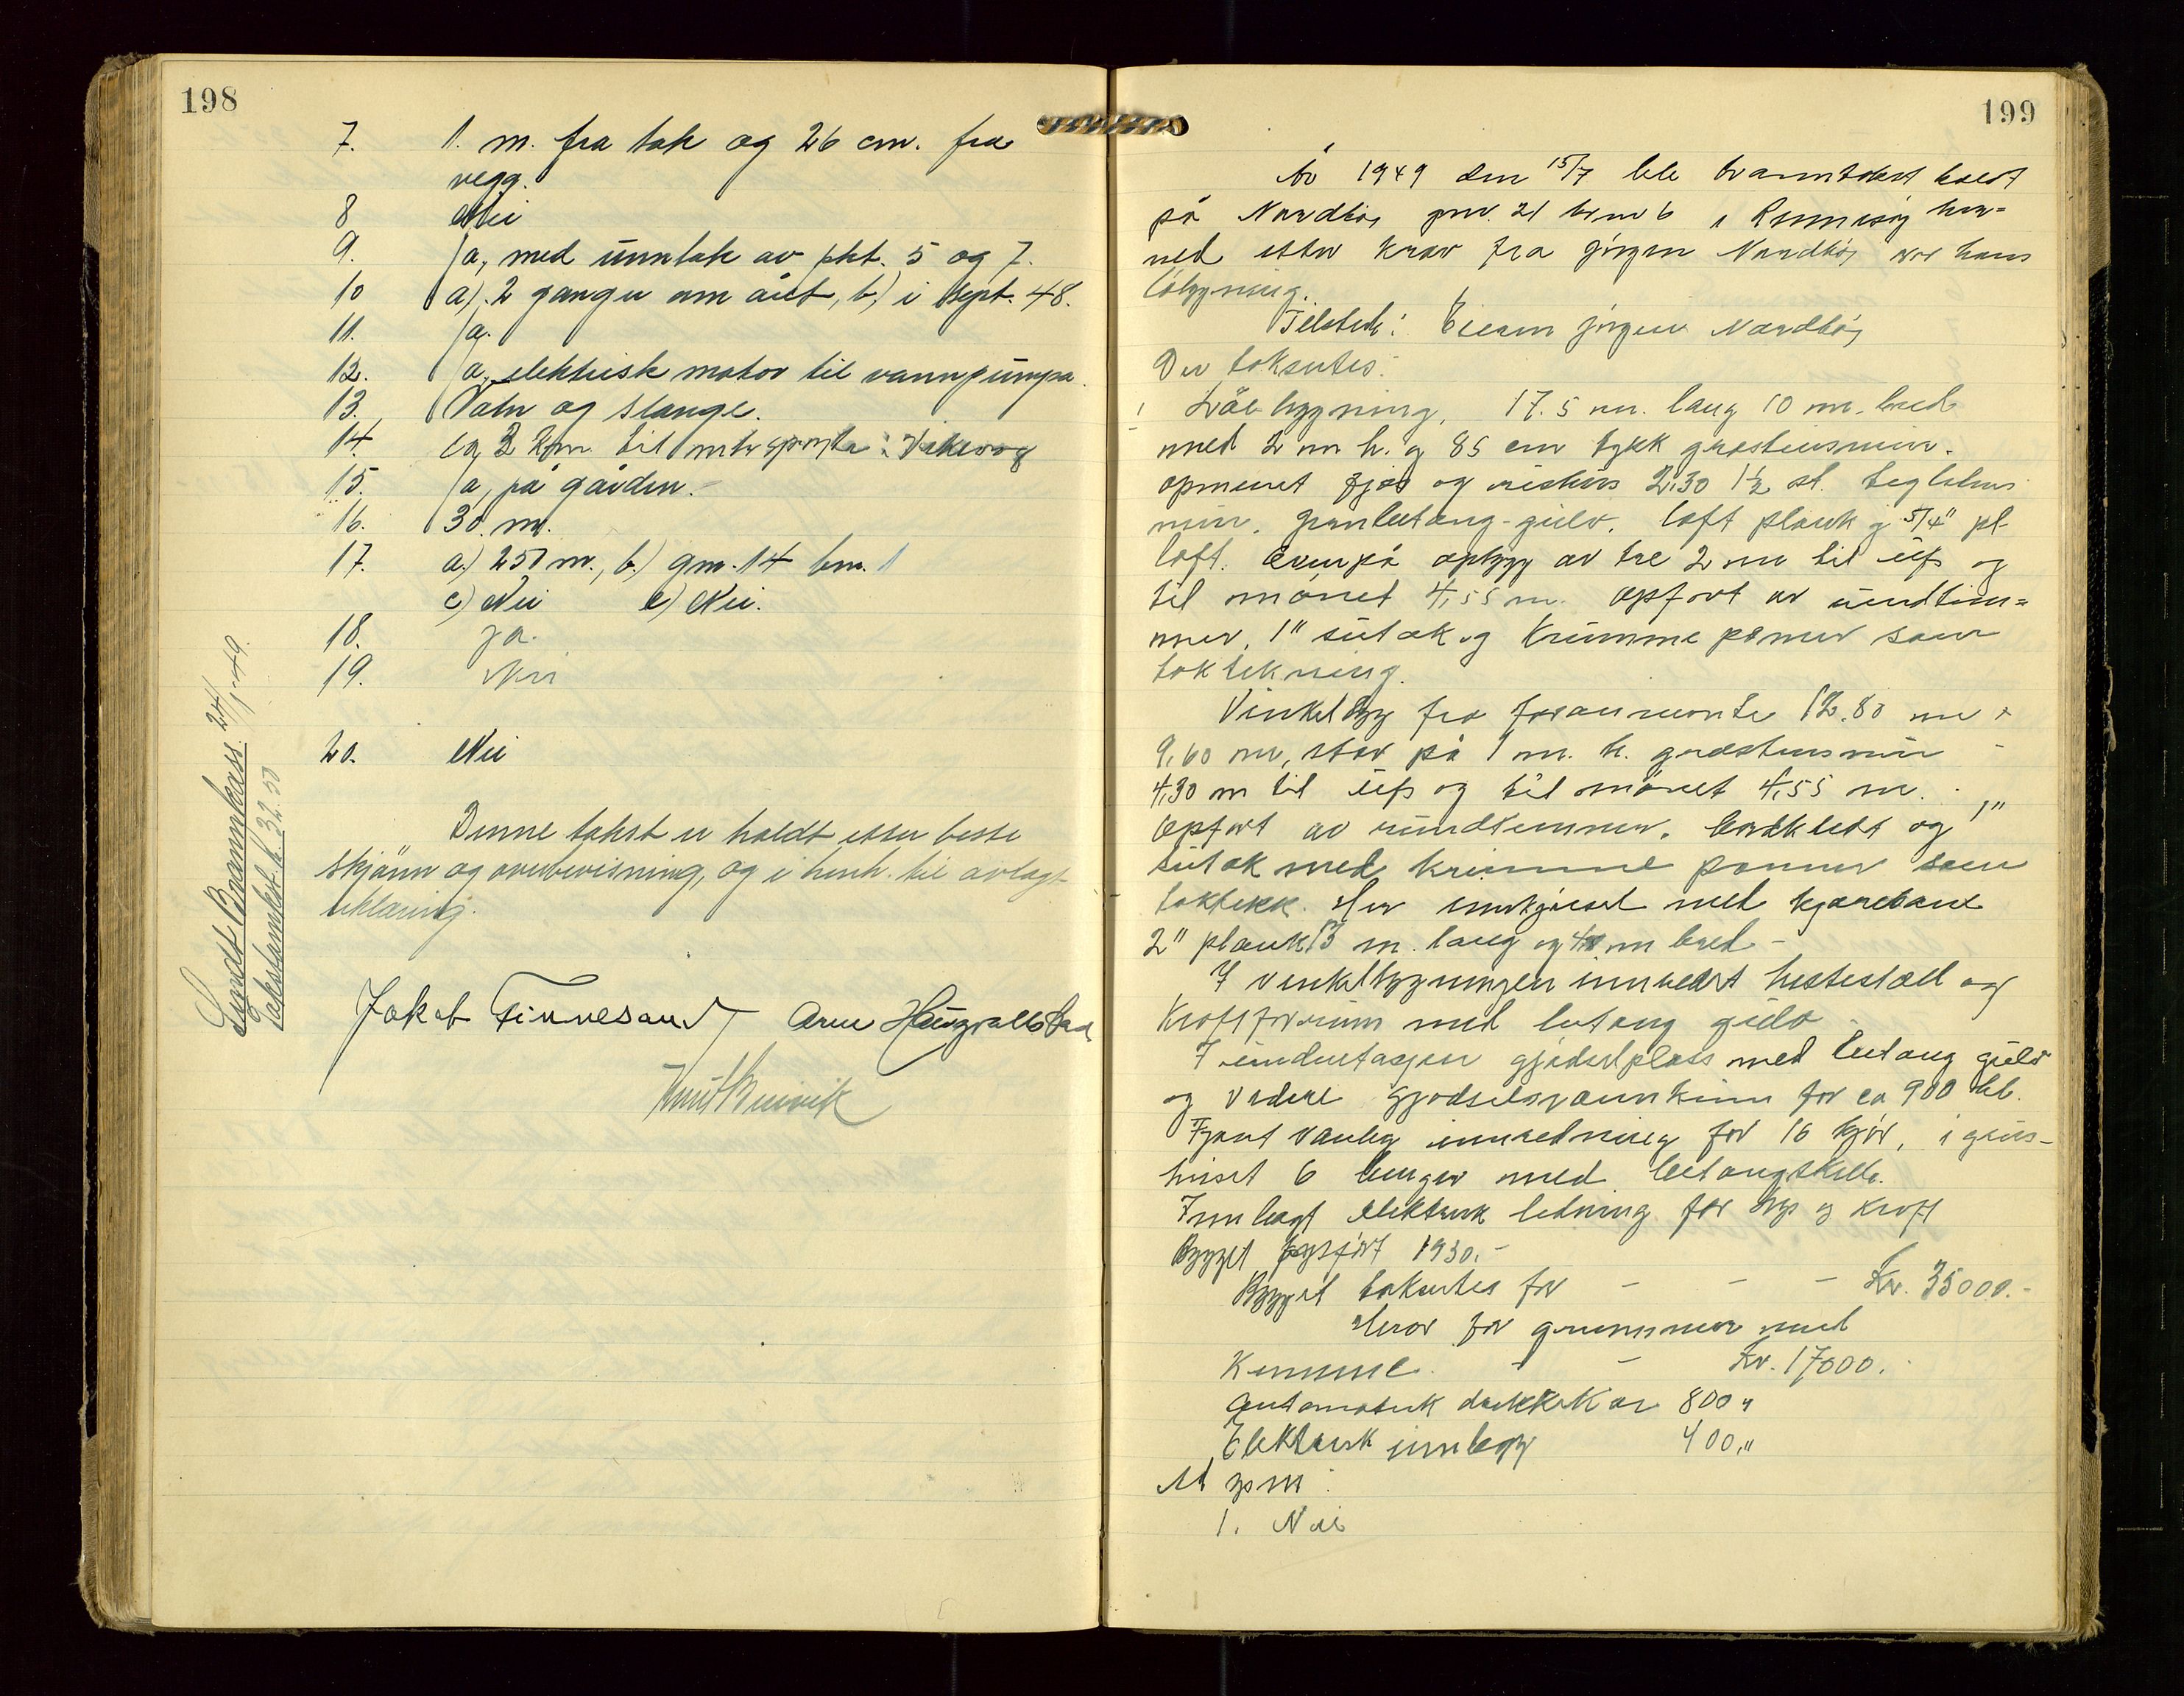 198
7. 1. m. fra tak og 26 cm. fra
vegg.
8 Nei
9. Ja, med unntak av pkt. 5 og 7.
10 a). 2 ganger om året, b.) i sept. 48.
11. Ja.
12. Ja, elektrisk motor til vannpumpa.
13. Vatn og slange.
14. ca 3 km til
15. Ja, på gården.-
16. 30. m.
17. a.) 250 m., b.) gnr. 14 bnr. 1
c) Nei e) Nei.
18. ja.
19. Nei
20. Nei
Denne takst er holdt etter beste
skjønn og overbevisning, og i henh. til avlagt
erklæring.
Jakob Finnesand Arne Haugvallstad
Sendt Brannkass. 24/1-49.
Takstamkst. k. 32.50
199
År 1949 den 15/7 ble branntakst holdt
på Nordbø, gnr. 21 br.nr 6 i Rennesøy her-
red etter krav fra Jørgen Nordbø, over hans
løbygning.
Tilstede: Eieren Jørgen Nordbø,
Der takseres:
1 Løebygning, 17.5 m. lang 10 m. bred
med 2 m h. og 85 cm tykk gråsteinsmur.
opmuret fjøs og grishus 2,30 1½ st. teglstens
mur, betong-gulv. loft plank og 5/4" pl
loft. ovenpå opbygg av tre 2 m til ufs og
til mønet 4,55 m. Opført av rundtim=
mer, 1" sutak og Krumme panner som
taktekning.
Vinkelbygg fra forannevnte 12.80 m x
9,60 m, står på 1 m. h. gråstensmur -
4,30 m til ufs og til mønet 4,55 m.
Opført av rundtemmer. bordkledt og 1"
sutak med krumme panner som
taktekk. Har innkjørsel med kjørebane
2" plank 13 m. lang og 4 m bred -
I vinkelbygningen innredet hestestall og
Kraftforrum med betong gulv -
I underetasjen gjødselplass med betong gulv
og videre Gjødselsvannkum for ca 900 hl.
Fjøset vanlig innredning for 16 kjør, i gris-
huset 6 binger med betongskille.
Innlagt elektrisk ledning for lys og kraft
Bygget opført 1930.-
Bygget takseres for - - - Kr. 35000.-
Herav for grunnmur med
Kumme. - - Kr. 17000.-
Automatisk drikkekar 800 "
Elektrisk innlegg 400, "
Sp.m:
1. Nei